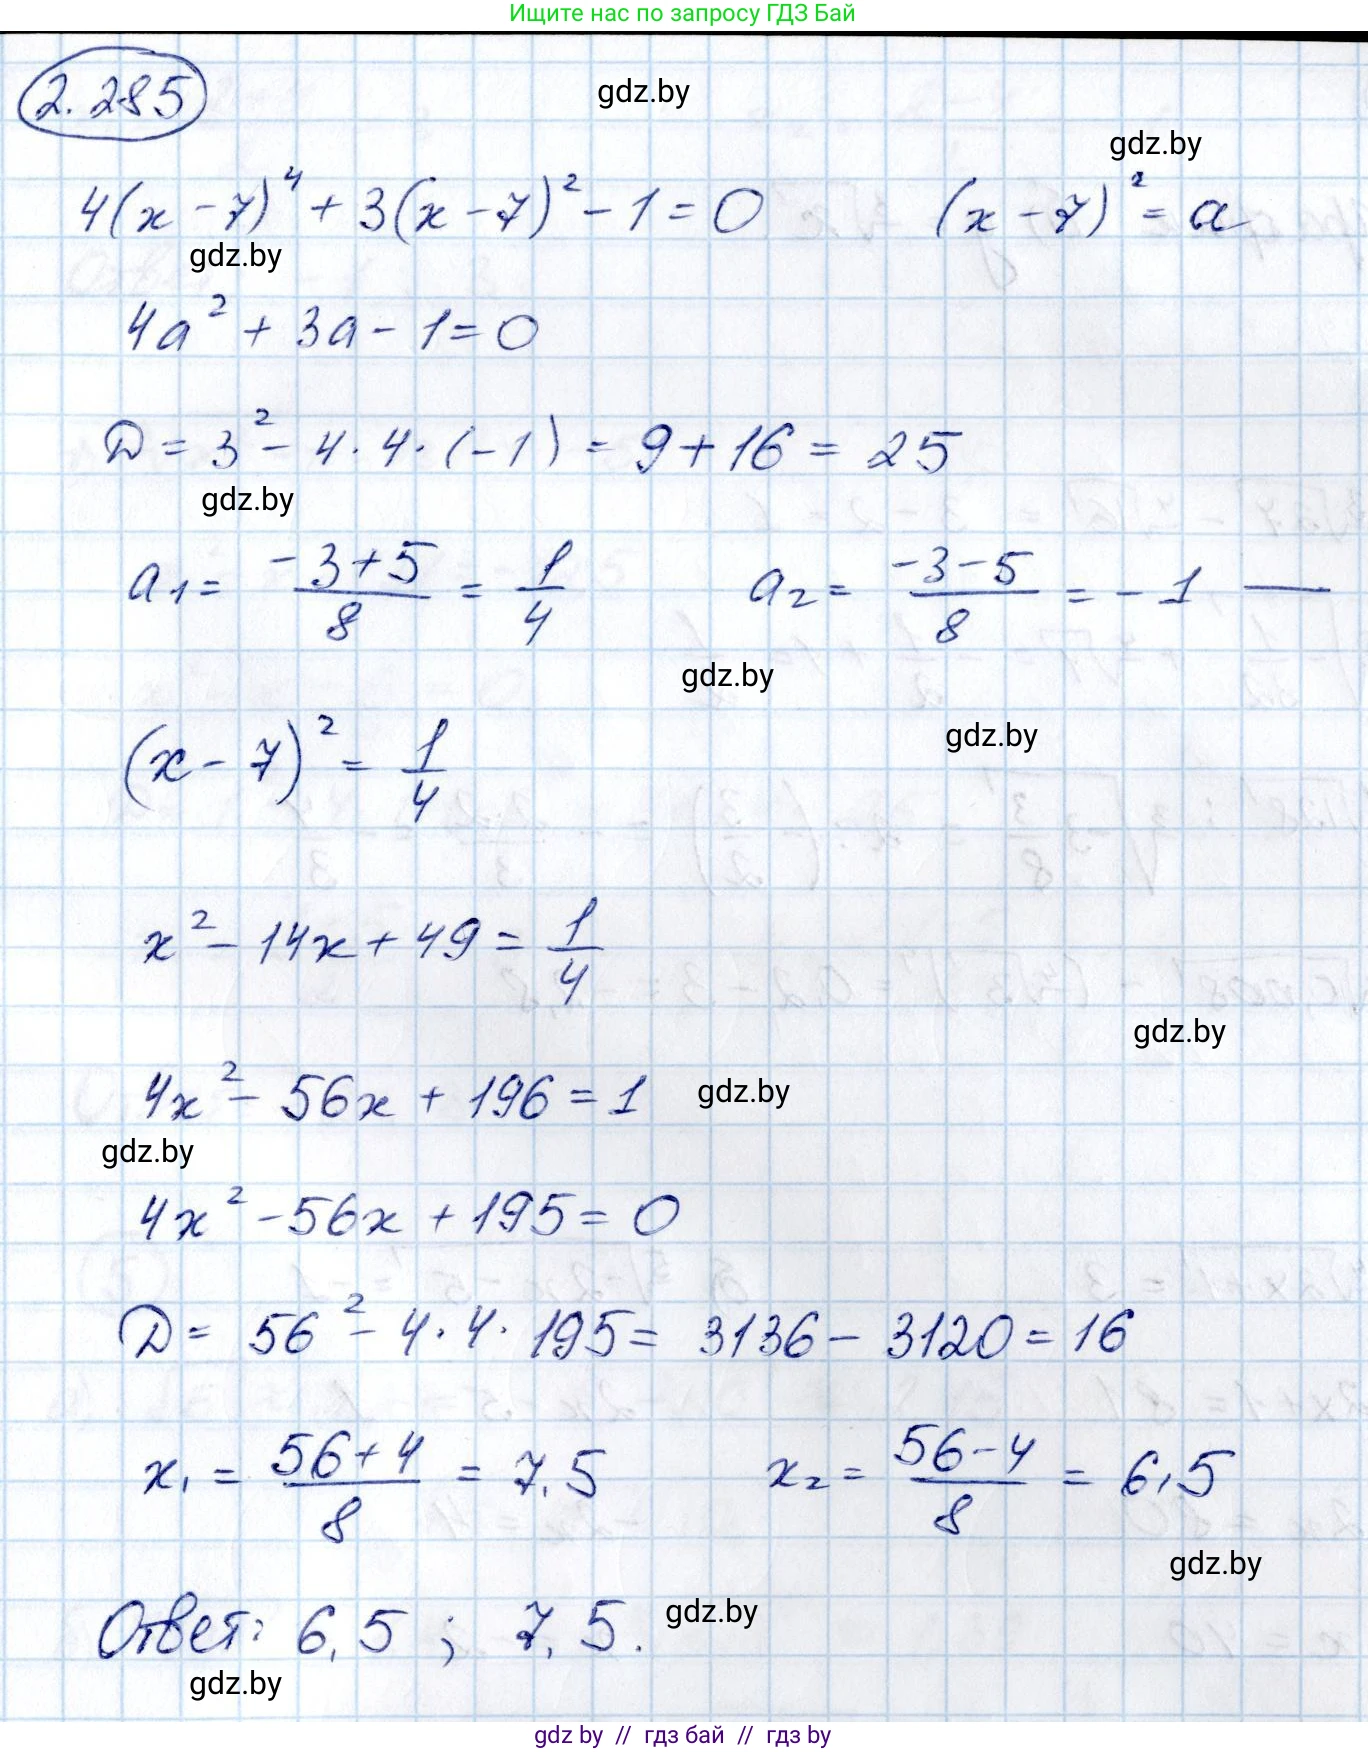 Ищите нас по запросу ГДЗ Бай
2.285
gdz.by
gdz.by
4(x-7)⁴ + 3(x-7)² - 1 = 0 (x-7)² = a
gdz.by
4a² + 3a - 1 = 0
D = 3² - 4·4·(-1) = 9 + 16 = 25
gdz.by
a₁ = (-3+5)/8 = 1/4 a₂ = (-3-5)/8 = -1 —
gdz.by
gdz.by
(x-7)² = 1/4
x² - 14x + 49 = 1/4
gdz.by
4x² - 56x + 196 = 1 gdz.by
gdz.by
4x² - 56x + 195 = 0
D = 56² - 4·4·195 = 3136 - 3120 = 16
x₁ = (56+4)/8 = 7,5 x₂ = (56-4)/8 = 6,5
gdz.by
Ответ: 6,5 ; 7,5. gdz.by
gdz.by
gdz by // гдз бай // гдз by